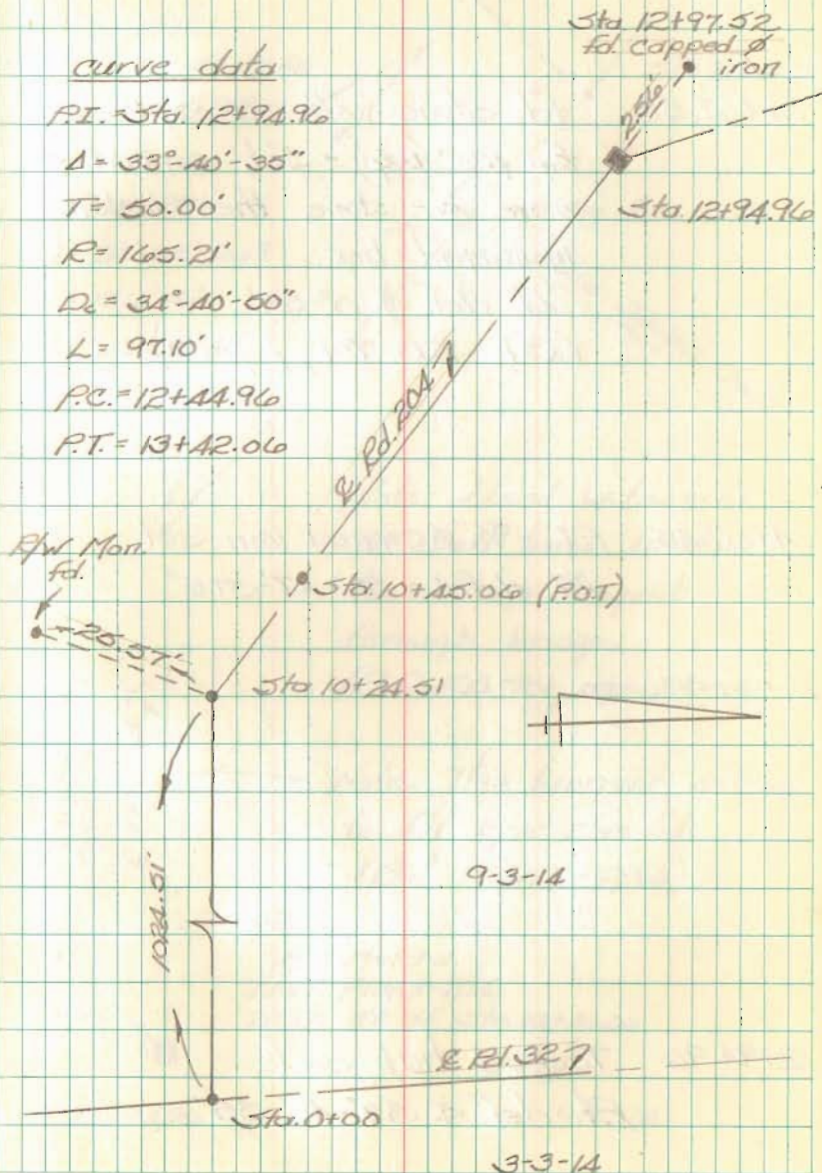 Sta. 12+97.52
fd. capped ⌀
iron
curve data
P.I. = Sta. 12+94.96
Δ = 33°-40'-35"
T = 50.00'
R = 165.21'
Dc = 34°-40'-50"
L = 97.10'
P.C. = 12+44.96
P.T. = 13+42.06
2.56'
Sta. 12+94.96
℄ Rd. 204
R/W Mon.
fd.
Sta. 10+45.06 (P.O.T)
25.57'
Sta 10+24.51
9-3-14
1024.51'
℄ Rd. 327
Sta. 0+00
3-3-14